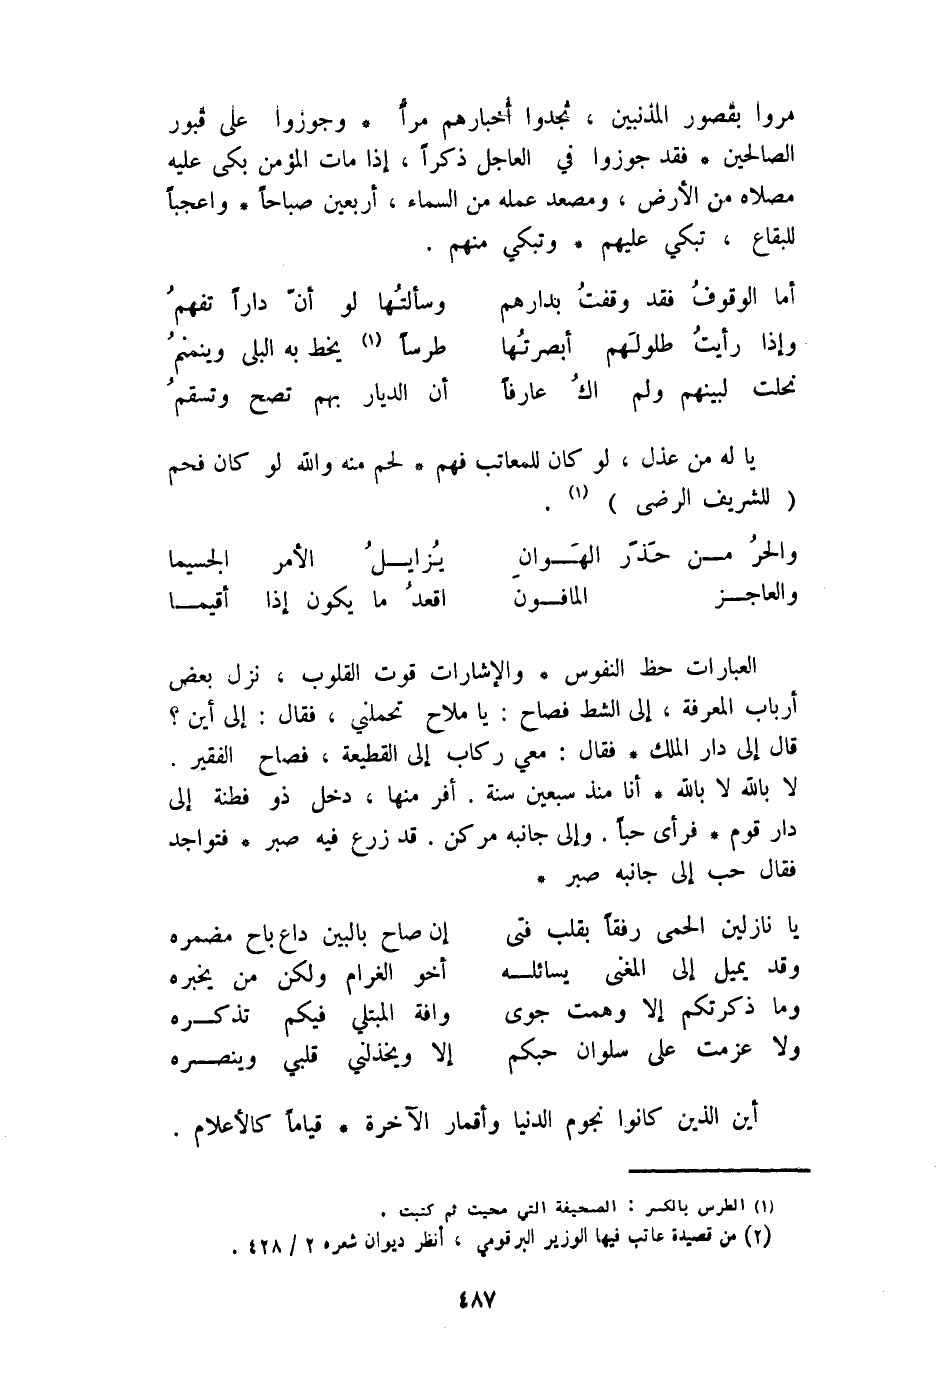 مروا بقصور المذنبين ، تجدوا أخبارهم مراً * وجوزوا على قبور
الصالحين * فقد جوزوا في العاجل ذكراً ، إذا مات المؤمن بكى عليه
مصلاه من الأرض ، ومصعد عمله من السماء ، أربعين صباحاً * واعجباً
للبقاع ، تبكي عليهم * وتبكي منهم .
أما الوقوفُ فقد وقفتُ بدارهم وسألتُها لو أنّ داراً تفهمُ
وإذا رأيتُ طلولَهم أبصرتُها طرساً (١) يخط به البلى وينمنمُ
نحلت لبينهم ولم اكُ عارفاً أن الديار بهم تصح وتسقمُ
يا له من عذل ، لو كان للمعاتب فهم * لحم منه والله لو كان فحم
( للشريف الرضى ) (١) .
والحرُ مـن حَذَرَ الهَـوانِ يُزايـلُ الأمر الجسيما
والعاجـز المافـون اقعدُ ما يكون إذا أقيمـا
العبارات حظ النفوس * والإشارات قوت القلوب ، نزل بعض
أرباب المعرفة ، إلى الشط فصاح : يا ملاح تحملني ، فقال : إلى أين ؟
قال إلى دار الملك * فقال : معي ركاب إلى القطيعة ، فصاح الفقير .
لا بالله لا بالله * أنا منذ سبعين سنة . أفر منها ، دخل ذو فطنة إلى
دار قوم * فرأى حباً . وإلى جانبه مركن . قد زرع فيه صبر * فتواجد
فقال حب إلى جانبه صبر *
يا نازلين الحمى رفقاً بقلب فتى إن صاح بالبين داع باح مضمره
وقد يميل إلى المغنى يسائلـه أخو الغرام ولكن من يخبره
وما ذكرتكم إلا وهمت جوى وافة المبتلي فيكم تذكـره
ولا عزمت على سلوان حبكم إلا ويخذلني قلبي وينصـره
أين الذين كانوا نجوم الدنيا وأقمار الآخرة * قياماً كالأعلام .
(١) الطرس بالكسر : الصحيفة التي محيت ثم كتبت .
(٢) من قصيدة عاتب فيها الوزير البرقومي ، أنظر ديوان شعره ٢ / ٤٢٨ .
٤٨٧